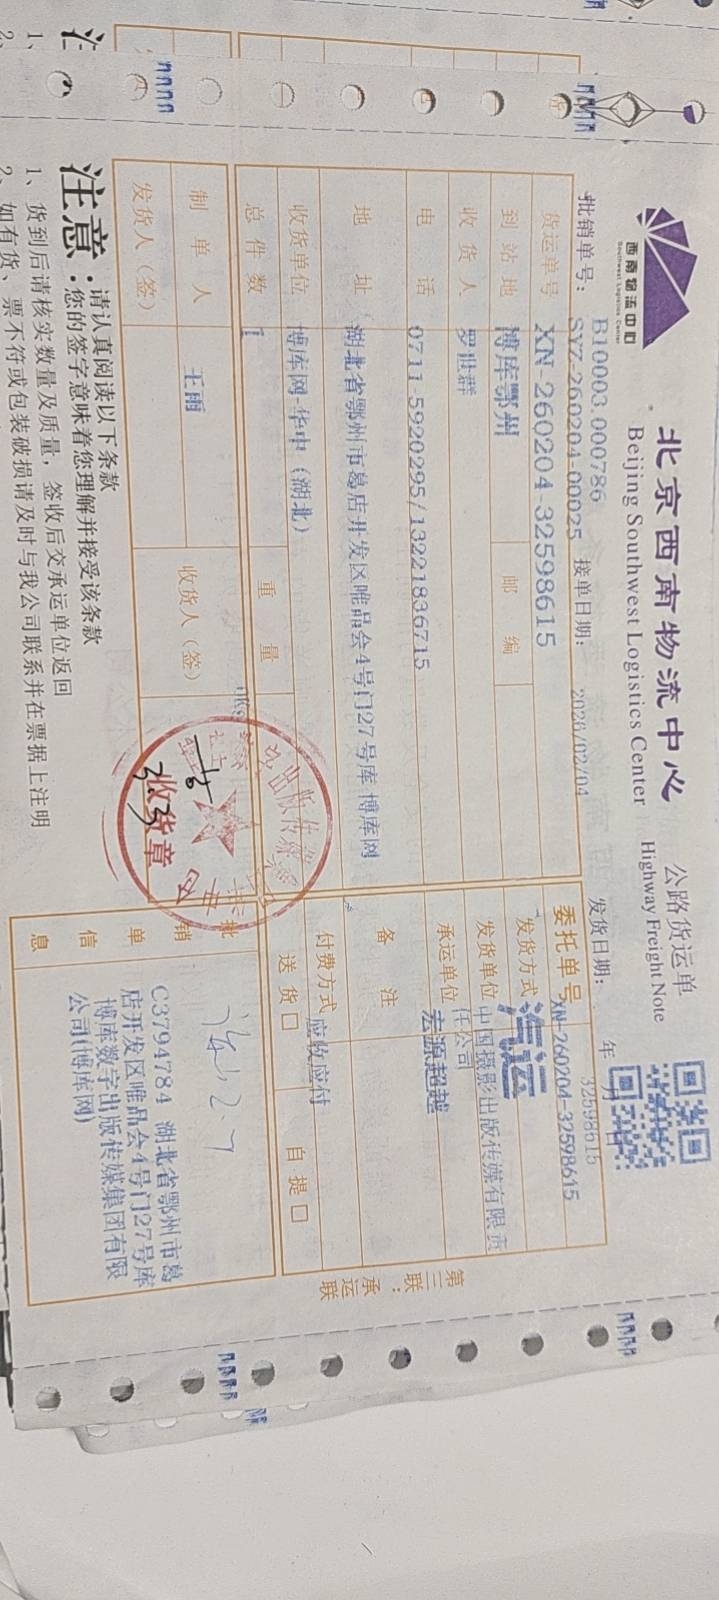 西南物流中心
Southwest Logistics Center
北京西南物流中心
Beijing Southwest Logistics Center
公路货运单
Highway Freight Note
B10003.000786
批销单号：SYZ-260204-00025 接单日期：2026/02/04 发货日期： 年 月 日
32598615
货运单号 XN-260204-32598615 委托单号 XN-260204-32598615
到站地 博库鄂州 邮编 发货方式 汽运
收货人 罗世群 发货单位 中国摄影出版传媒有限责任公司
电话 0711-5920295/13221836715 承运单位 宏源超越
地址 湖北省鄂州市葛店开发区唯品会4号门27号库 博库网 备注
收货单位 博库网-华中（湖北） 付费方式 应收应付
总件数 1 重量 送货□ 自提□
制单人 王雨 收货人（签）
发货人（签）
收货章
批销单信息
C3794784 湖北省鄂州市葛
店开发区唯品会4号门27号库
博库数字出版传媒集团有限
公司(博库网)
第三联：承运联
注意：请认真阅读以下条款
您的签字意味着您理解并接受该条款
1、货到后请核实数量及质量，签收后交承运单位返回
2、如有货、票不符或包装破损请及时与我公司联系并在票据上注明